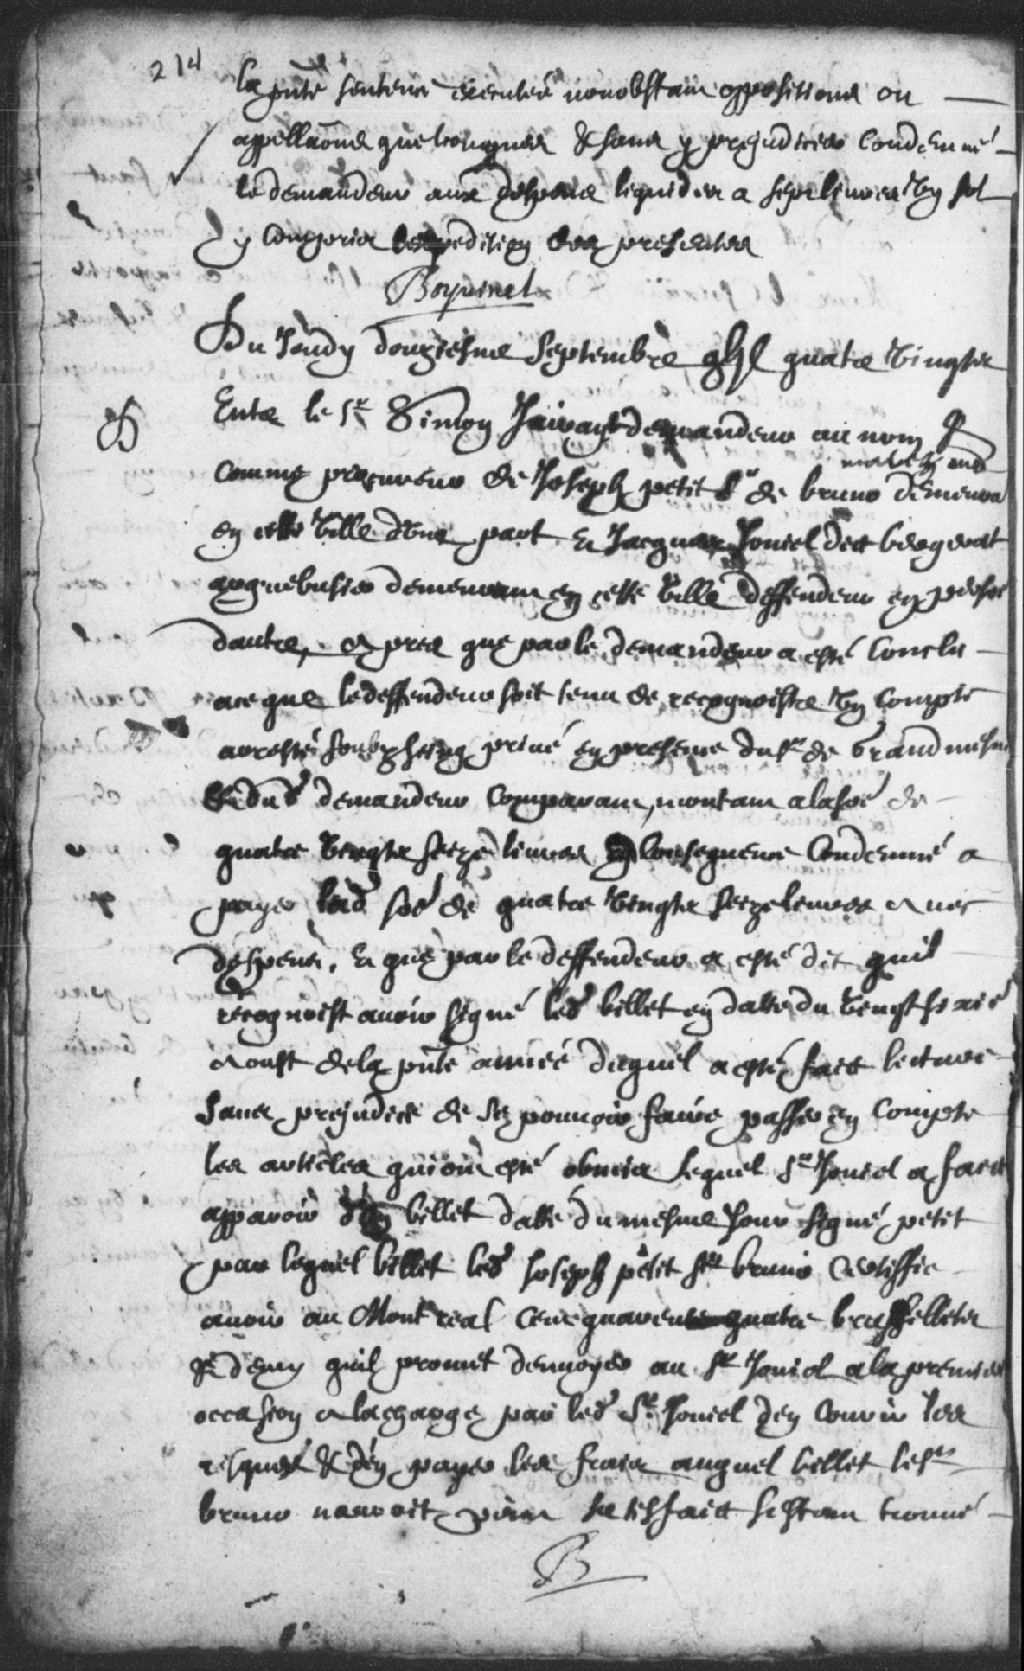 214
la pnte sentence executée nonobstant oppositions ou
appellaons quelconques & sans y prejudicier Condemné
le demandeur aux despens liquidez a sept livres Un sol
y Compris lexpedition des presentes
Boyvinet
Du Jeudy douziesme Septembre quatre Vingts
Entre le Sr Simon demandeur au nom &
Comme procureur de Joseph petit Sr de bruno demeurant
en cette Ville dUne part Et Jacques Joriel dit
arquebusier demeurant en cette Ville deffendeur
dautre, Apres que par le demandeur a esté Conclu
ace que le deffendeur soit tenu de recognoistre Un Compte
arresté soubz seing privé en presence du Sr de Grandmesnil
& dud demandeur Comparant, montant alasoe de
quatre Vingts seize livres En Consequence Condemné a
payer lad soe de quatre Vingts seize livres Avec
despens, Et que par le deffendeur a esté dit quil
recognoist avoir signé led billet en datte du Vingt sixie
Aoust de la pnte année duquel a esté fait lecture
Sans prejudice de se pouvoir faire passer en Compte
les articles qui ont esté obmis lequel Sr Joriel a fait
apparoir billet datté du mesme Jour signé petit
par lequel billet led Joseph petit Sr bruno Certiffie
avoir au Mont real Cent quarente quatre
& demy quil promet denvoyer au Sr Joriel ala premiere
occasion Alacharge par led Sr Joriel den Courir les
risques & den payer les frais auquel billet led Sr
bruno nauroit point satisfait sestant trouvé
B